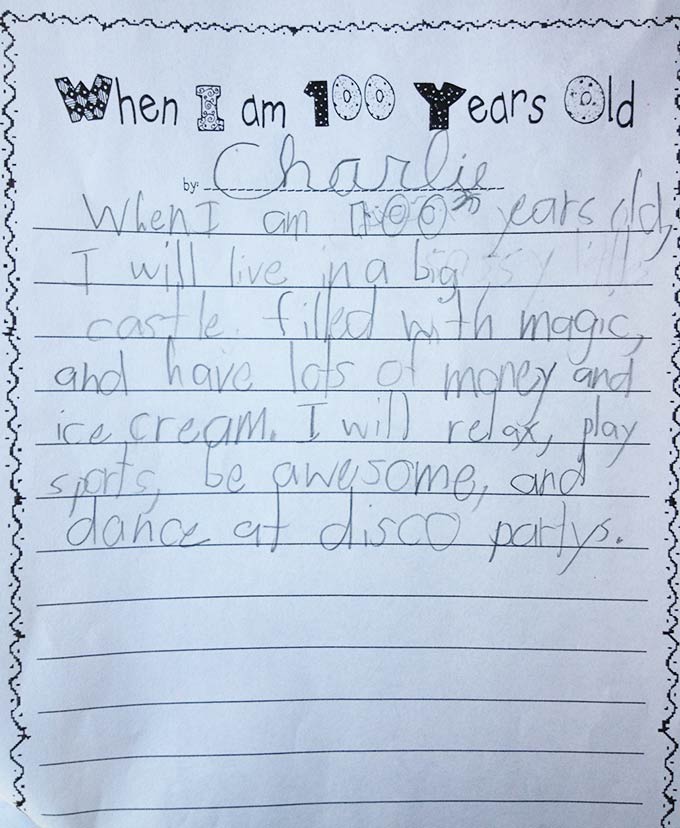 When I am 100 Years Old
by: Charlie
When I am 100 years old,
I will live in a big
castle. filled with magic,
and have lots of money and
ice cream. I will relax, play
sports, be awesome, and
dance at disco partys.